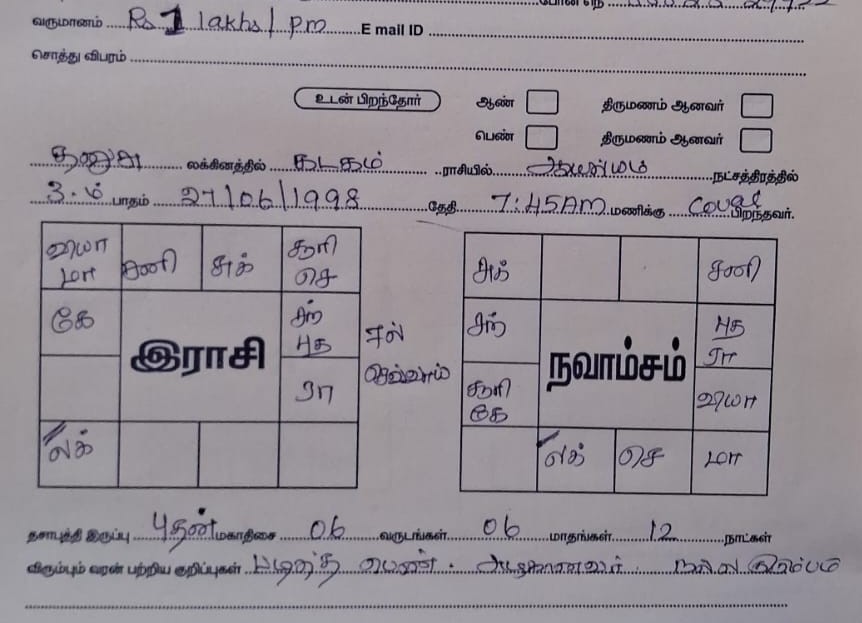 வருமானம் Rs 1 lakhs / pm E mail ID
சொத்து விபரம்
உடன் பிறந்தோர் ஆண் திருமணம் ஆனவர்
பெண் திருமணம் ஆனவர்
தனுசு லக்கினத்தில் கடகம் ராசியில் ஆயில்யம் நட்சத்திரத்தில்
3.ம் பாதம் 27/06/1998 தேதி 7:45AM மணிக்கு பிறந்தவர்.
வியா சனி சுக் சூரி அக் சனி
மா செ
கே சந் சந் புத
புத ரா
இராசி ஏல் நவாம்சம்
ரா செவ்வாய் சூரி வியா
கே
லக் லக் செ மா
தசாபுத்தி இருப்பு புதன் மகாதிசை 06 வருடங்கள் 06 மாதங்கள் 12 நாட்கள்
விரும்பும் வரன் பற்றிய குறிப்புகள் படித்த பெண். அழகானவர். நல்ல குடும்பம்